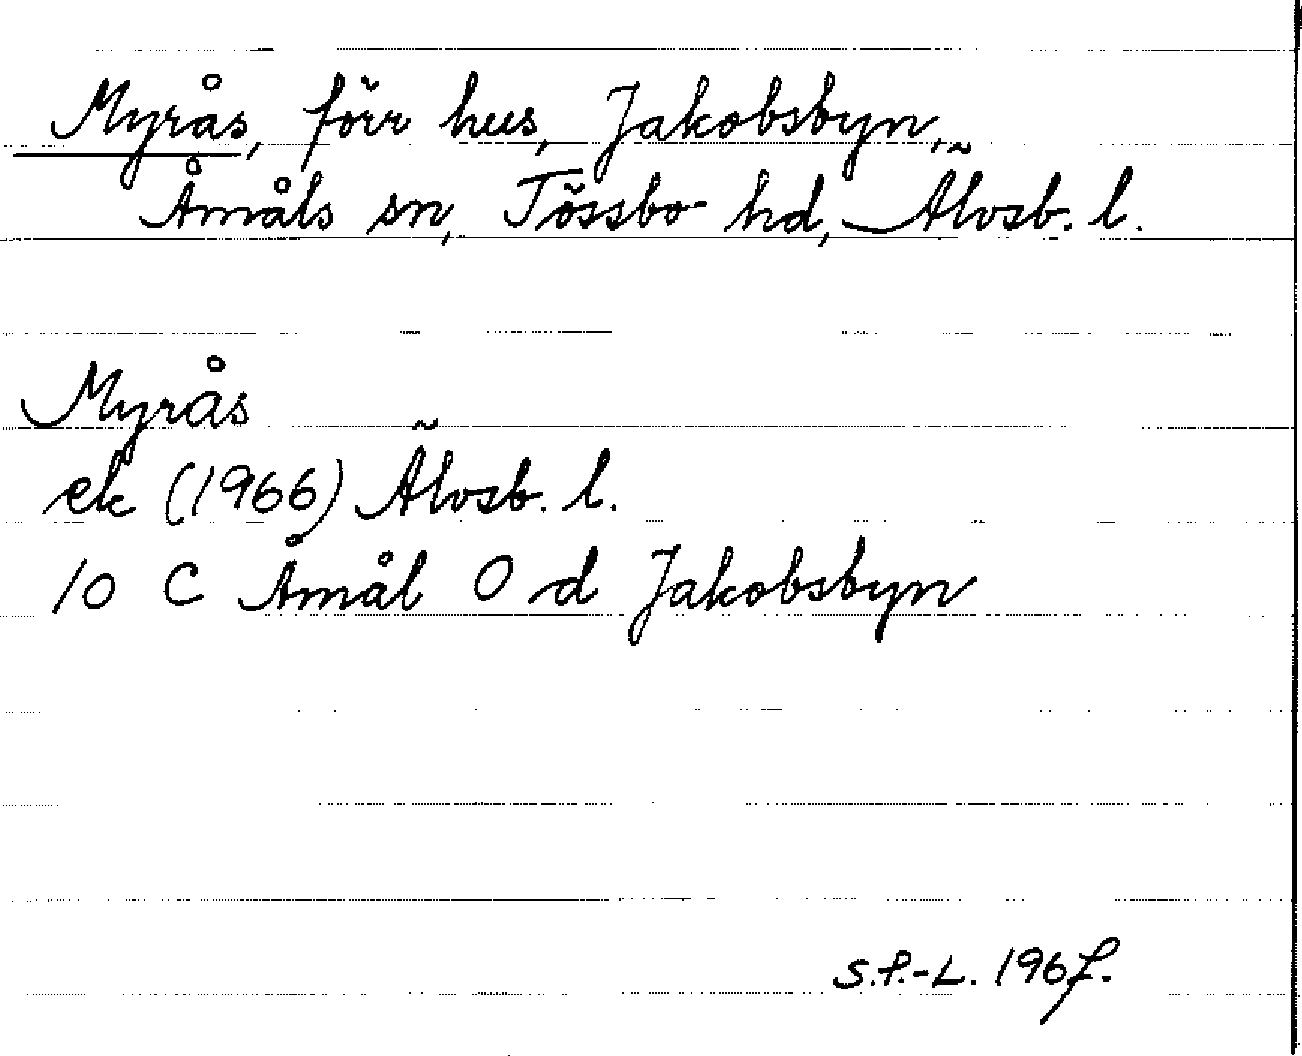 Myrås, förr hus, Jakobsbyn,
Åmåls sn, Tössbo hd, Älvsb. l.
Myrås
ek (1966) Älvsb. l.
10 C Åmål O d Jakobsbyn
S.P.-L. 1967.